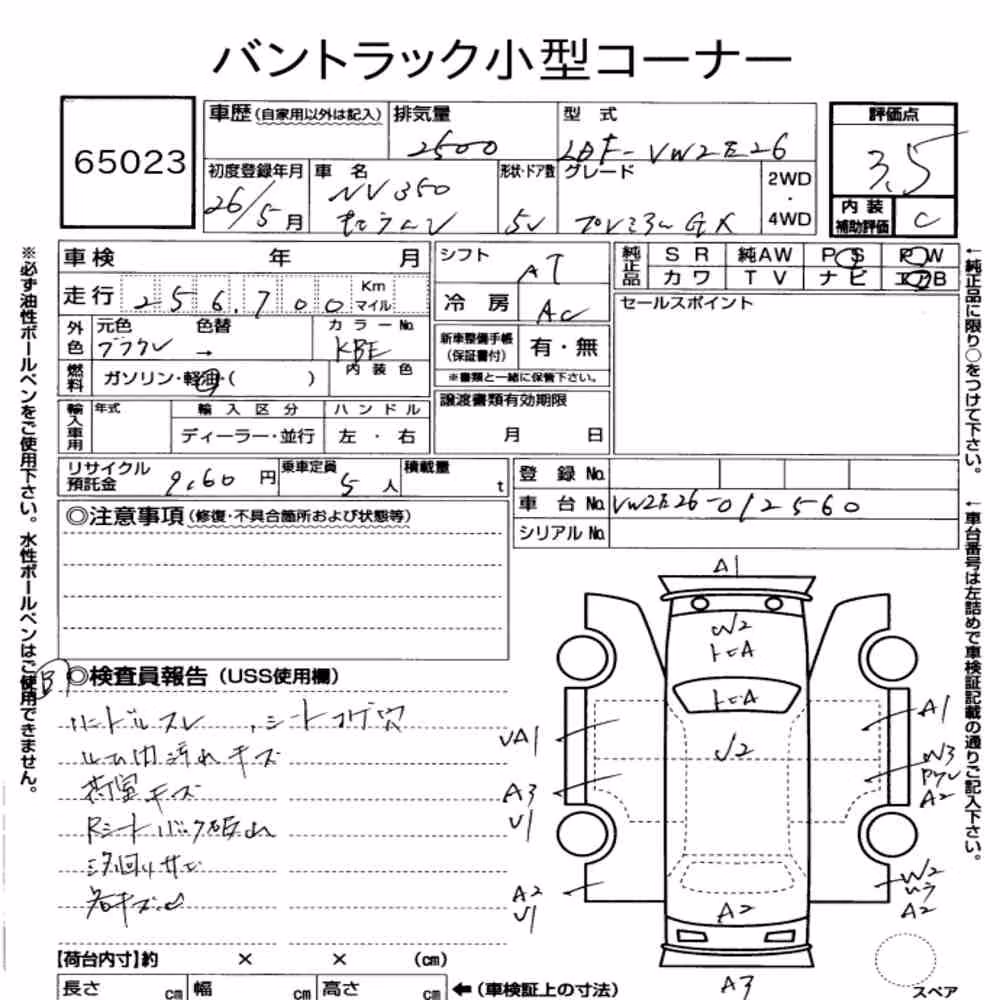 バントラック小型コーナー
65023
車歴 (自家用以外は記入)
排気量
2500
型式
LDF-VW2E26
評価点
3.5
初度登録年月
26/5月
車名
NV350
キャラバン
形状・ドア数
5V
グレード
プレミアムGX
2WD
・
4WD
内装
補助評価
C
車検 年 月
シフト
AT
純正品
SR 純AW PS PW
カワ TV ナビ エアB
走行 256,700 Km マイル
冷房
AC
セールスポイント
外色
元色 色替
ブラウン →
カラーNo.
KBE
新車整備手帳
(保証書付)
有・無
※書類と一緒に保管下さい。
燃料
ガソリン・軽油・( )
内装色
譲渡書類有効期限
月 日
輸入車用
年式
輸入区分
ハンドル
ディーラー・並行
左・右
リサイクル
預託金
9,60 円
乗車定員
5人
積載量
t
登録No.
車台No. VW2E26-012560
シリアルNo.
◎注意事項(修復・不具合箇所および状態等)
B
◎検査員報告(USS使用欄)
ハンドルスレ , シートコゲ穴
ルーム内汚れキズ
荷室キズ
Rシートバック破れ
下回りサビ
A1
W2
トビA
トビA
V2
UA1
A1
A3
U1
W3
A2
A2
U1
W2
A2
A2
A3
【荷台内寸】約 × × (cm)
長さ cm 幅 cm 高さ cm
←(車検証上の寸法)
スペア
※必ず油性ボールペンをご使用下さい。水性ボールペンはご使用できません。
←純正品に限り○をつけて下さい。
←車台番号は左詰めで車検証記載の通りご記入下さい。